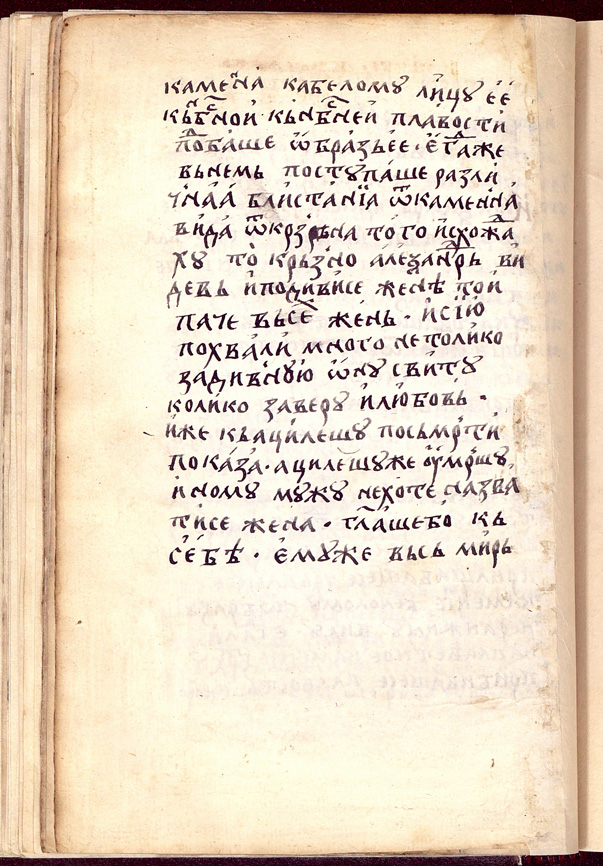 каменна кабелому лицу ее
къбⷭ҇ной · къне бⷭ҇ней плавости
пⷣобаше ѿбразъее · егⷣаже
вънемь поступаше разли
чнаа блистанїа ѿкаменна
вида ѿкрзьна того исхожⷣа
ху то крьзно алеѯанⷣрь ви
девь иподивисе женѣ той
паче въсе жень · исїю
похвали много нетолико
задивную ѡну свиту
колико заверу илюбовь ·
иже къацилешу посьмрти
показа · ацилешуже оумршу,
иномꙋ мужу нехоте назва
тисе жена · глашебо къ
себѣ · емуже въсь мирь